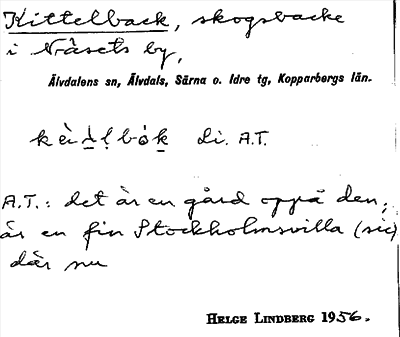 Kittelback, skogsbacke
i Nåsets by,
Älvdalens sn, Älvdals, Särna o. Idre tg, Kopparbergs län.
di. A.T.
A.T.: det är en gård oppå den,
är en fin Stockholmsvilla (sic)
där nu
HELGE LINDBERG 1956.